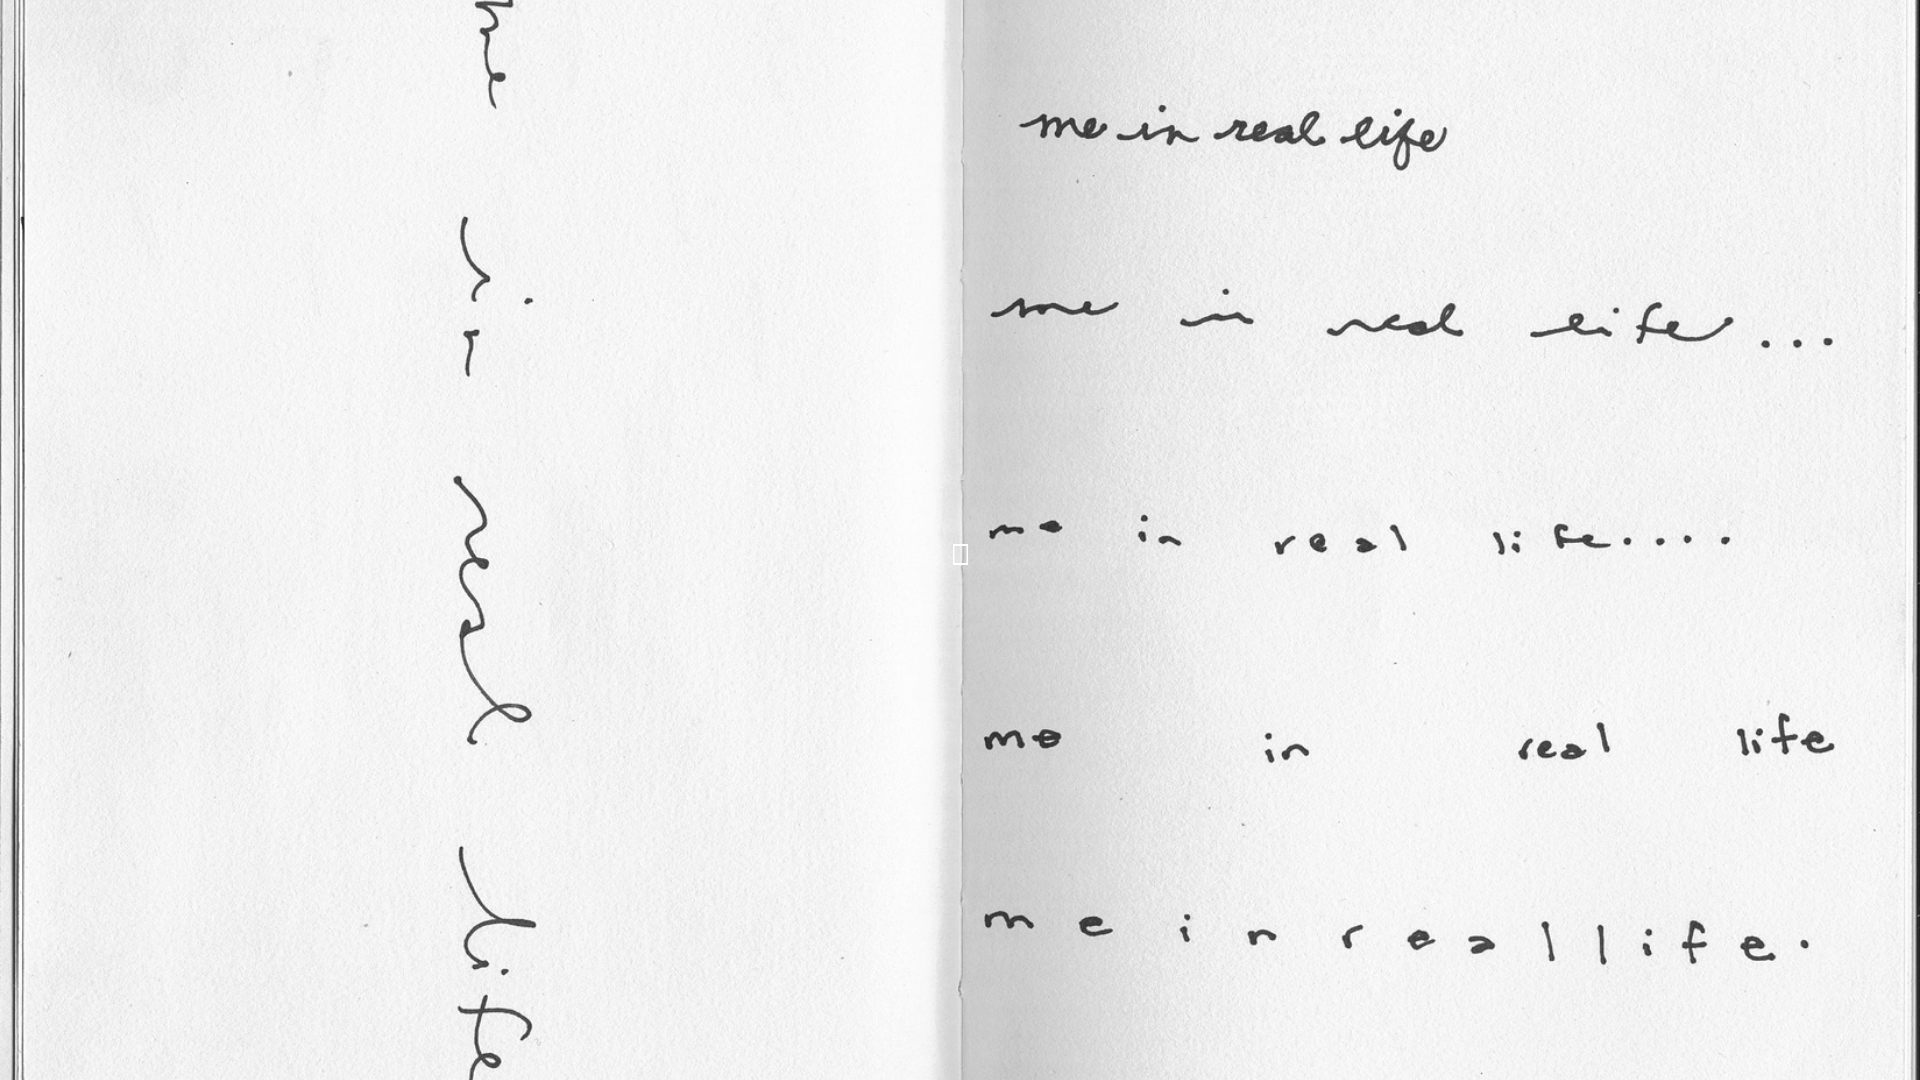 me in real life
me in real life
me in real life...
me in real life....
me in real life
m e i n r e a l l i f e.